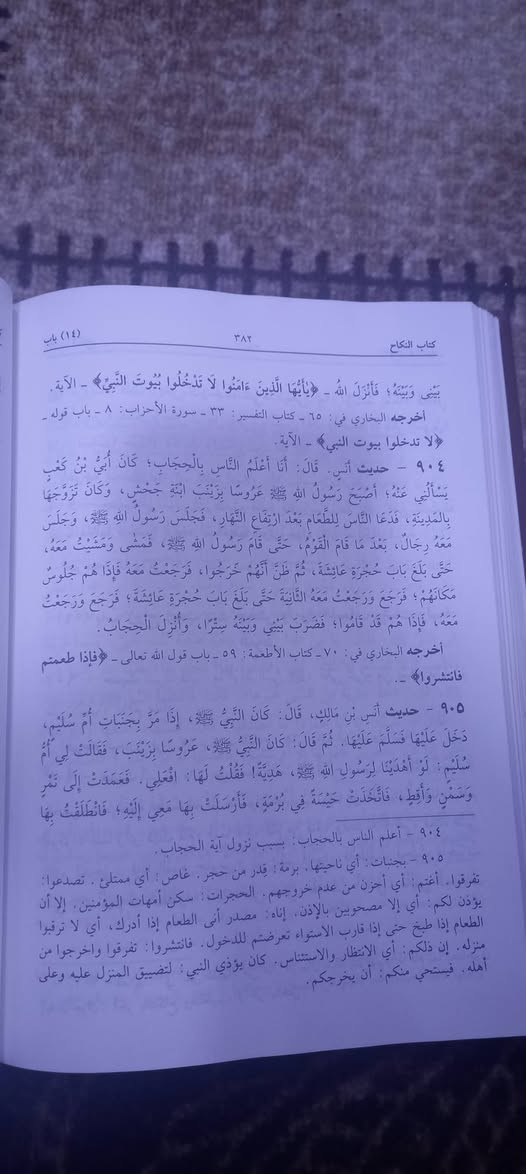 كتاب النكاح ٣٨٢ (١٤) باب
بَيْنِي وَبَيْنَهُ؛ فَأَنْزَلَ اللهُ ـ ﴿يٰأَيُّهَا الَّذِينَ ءَامَنُوا لَا تَدْخُلُوا بُيُوتَ النَّبِيِّ﴾ ـ الآية.
أخرجه البخاري في: ٦٥ ـ كتاب التفسير: ٣٣ ـ سورة الأحزاب: ٨ ـ باب قوله ـ
﴿لا تدخلوا بيوت النبي﴾ ـ الآية.
٩٠٤ - حديث أَنَسٍ. قَالَ: أَنَا أَعْلَمُ النَّاسِ بِالْحِجَابِ؛ كَانَ أُبَيُّ بْنُ كَعْبٍ
يَسْأَلُنِي عَنْهُ؛ أَصْبَحَ رَسُولُ اللهِ ﷺ عَرُوسًا بِزَيْنَبَ ابْنَةِ جَحْشٍ، وَكَانَ تَزَوَّجَهَا
بِالْمَدِينَةِ، فَدَعَا النَّاسَ لِلطَّعَامِ بَعْدَ ارْتِفَاعِ النَّهَارِ، فَجَلَسَ رَسُولُ اللهِ ﷺ، وَجَلَسَ
مَعَهُ رِجَالٌ، بَعْدَ مَا قَامَ الْقَوْمُ، حَتَّى قَامَ رَسُولُ اللهِ ﷺ، فَمَشَى وَمَشَيْتُ مَعَهُ،
حَتَّى بَلَغَ بَابَ حُجْرَةِ عَائِشَةَ، ثُمَّ ظَنَّ أَنَّهُمْ خَرَجُوا، فَرَجَعْتُ مَعَهُ فَإِذَا هُمْ جُلُوسٌ
مَكَانَهُمْ؛ فَرَجَعَ وَرَجَعْتُ مَعَهُ الثَّانِيَةَ حَتَّى بَلَغَ بَابَ حُجْرَةِ عَائِشَةَ؛ فَرَجَعَ وَرَجَعْتُ
مَعَهُ، فَإِذَا هُمْ قَدْ قَامُوا؛ فَضَرَبَ بَيْنِي وَبَيْنَهُ سِتْرًا، وَأُنْزِلَ الْحِجَابُ.
أخرجه البخاري في: ٧٠ ـ كتاب الأطعمة: ٥٩ ـ باب قول الله تعالى ـ ﴿فإذا طعمتم
فانتشروا﴾ ـ.
٩٠٥ - حديث أَنَسِ بْنِ مَالِكٍ، قَالَ: كَانَ النَّبِيُّ ﷺ، إِذَا مَرَّ بِجَنَبَاتِ أُمِّ سُلَيْمٍ،
دَخَلَ عَلَيْهَا فَسَلَّمَ عَلَيْهَا. ثُمَّ قَالَ: كَانَ النَّبِيُّ ﷺ، عَرُوسًا بِزَيْنَبَ، فَقَالَتْ لِي أُمُّ
سُلَيْمٍ: لَوْ أَهْدَيْنَا لِرَسُولِ اللهِ ﷺ، هَدِيَّةً! فَقُلْتُ لَهَا: افْعَلِي. فَعَمَدَتْ إِلَى تَمْرٍ
وَسَمْنٍ وَأَقِطٍ، فَاتَّخَذَتْ حَيْسَةً فِي بُرْمَةٍ، فَأَرْسَلَتْ بِهَا مَعِي إِلَيْهِ؛ فَانْطَلَقْتُ بِهَا
٩٠٤ - أعلم الناس بالحجاب: بسبب نزول آية الحجاب.
٩٠٥ - بجنبات: أي ناحيتها. برمة: قدر من حجر. غاص: أي ممتلئ. تصدعوا:
تفرقوا. أغتم: أي أحزن من عدم خروجهم. الحجرات: سكن أمهات المؤمنين. إلا أن
يؤذن لكم: أي إلا مصحوبين بالإذن. إناه: مصدر أنى الطعام إذا أدرك، أي لا ترقبوا
الطعام إذا طبخ حتى إذا قارب الاستواء تعرضتم للدخول. فانتشروا: تفرقوا واخرجوا من
منزله. إن ذلكم: أي الانتظار والاستئناس. كان يؤذي النبي: لتضييق المنزل عليه وعلى
أهله. فيستحي منكم: أن يخرجكم.